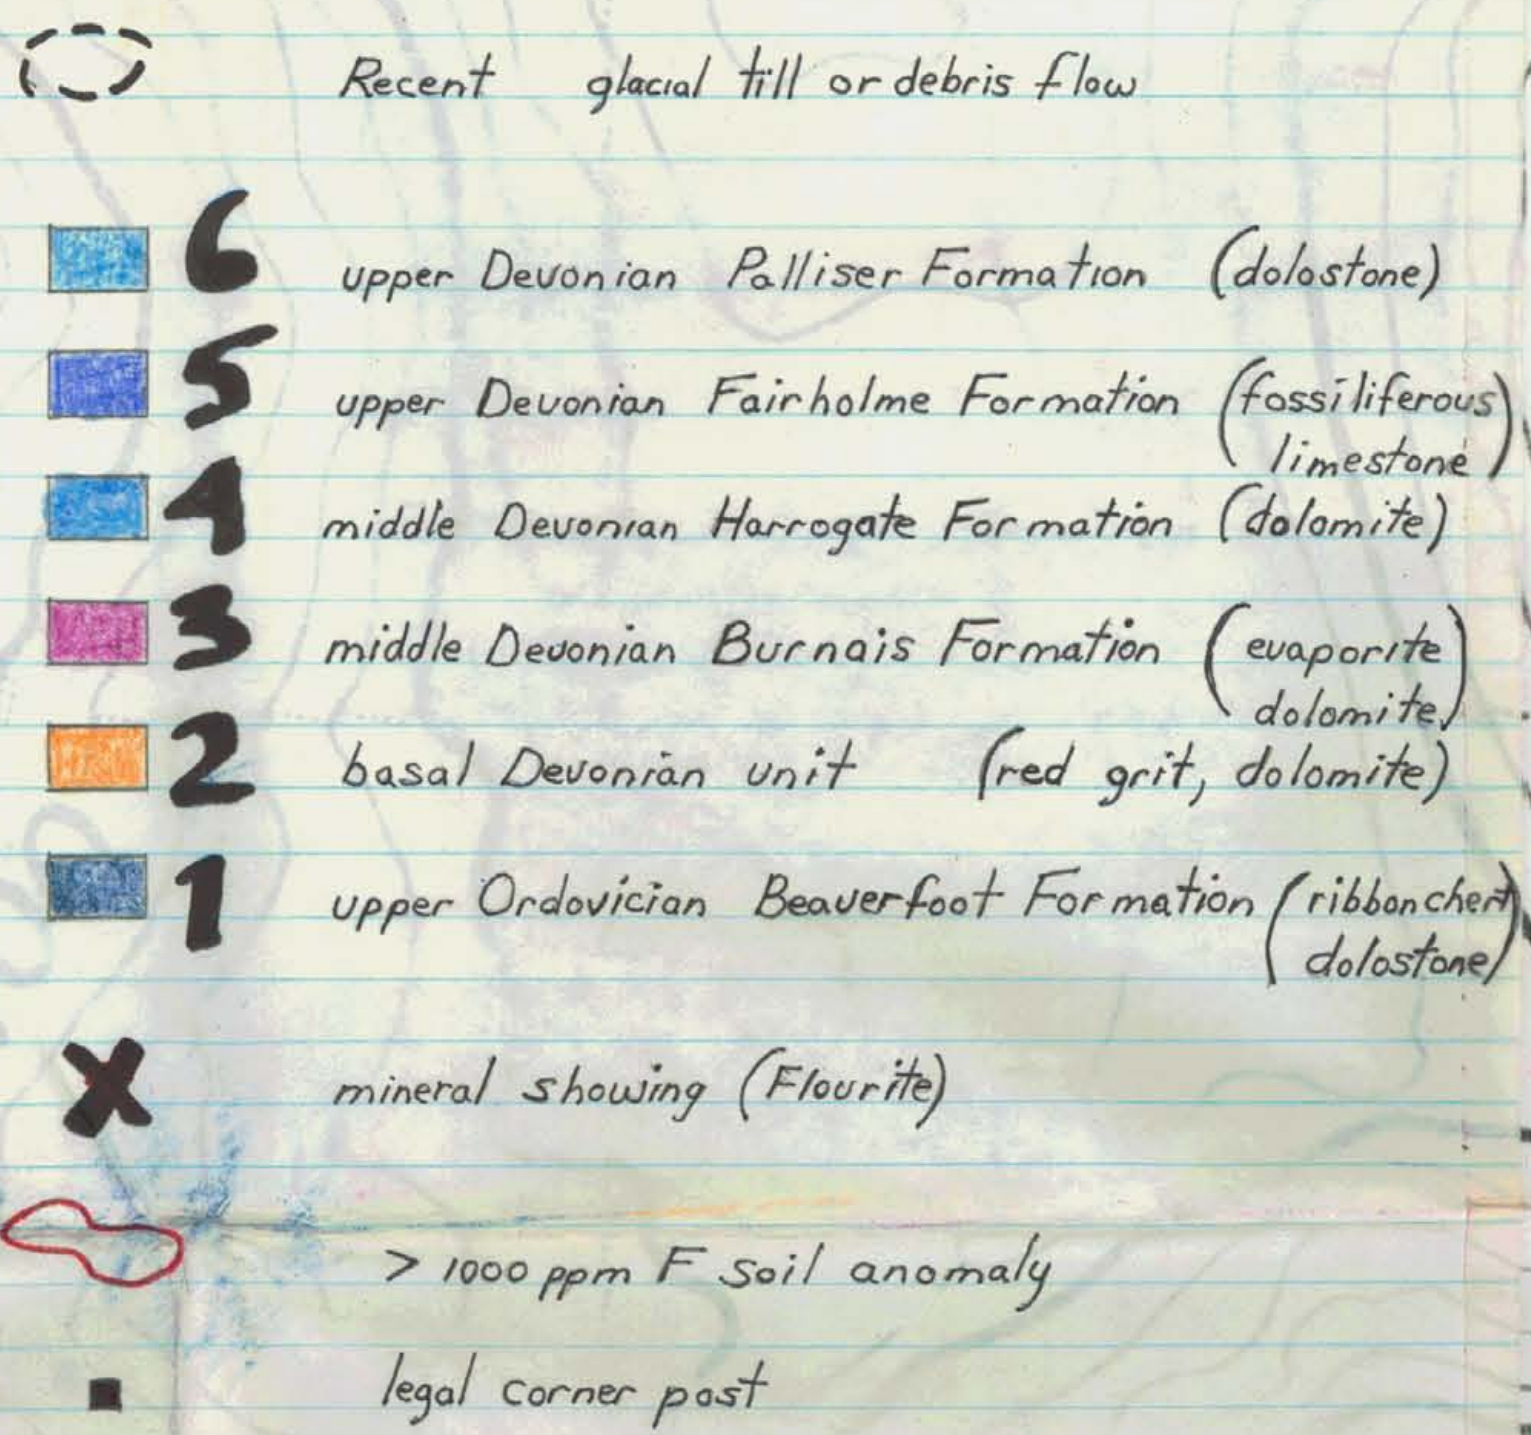 Recent glacial till or debris flow
6 upper Devonian Palliser Formation (dolostone)
5 upper Devonian Fairholme Formation (fossiliferous
limestone)
4 middle Devonian Harrogate Formation (dolomite)
3 middle Devonian Burnais Formation (evaporite
dolomite)
2 basal Devonian unit (red grit, dolomite)
1 upper Ordovician Beaverfoot Formation (ribbon chert
dolostone)
mineral showing (Flourite)
> 1000 ppm F soil anomaly
legal corner post